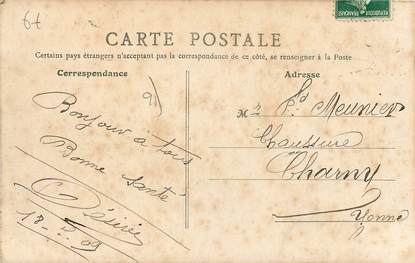 64
RÉPUBLIQUE FRANÇAISE
CARTE POSTALE
Certains pays étrangers n'acceptant pas la correspondance de ce côté, se renseigner à la Poste
Correspondance
Adresse
Bonjour à tous
Bonne santé
Désirée
Mr Fd Meunier
Chaussure
Charny
Yonne